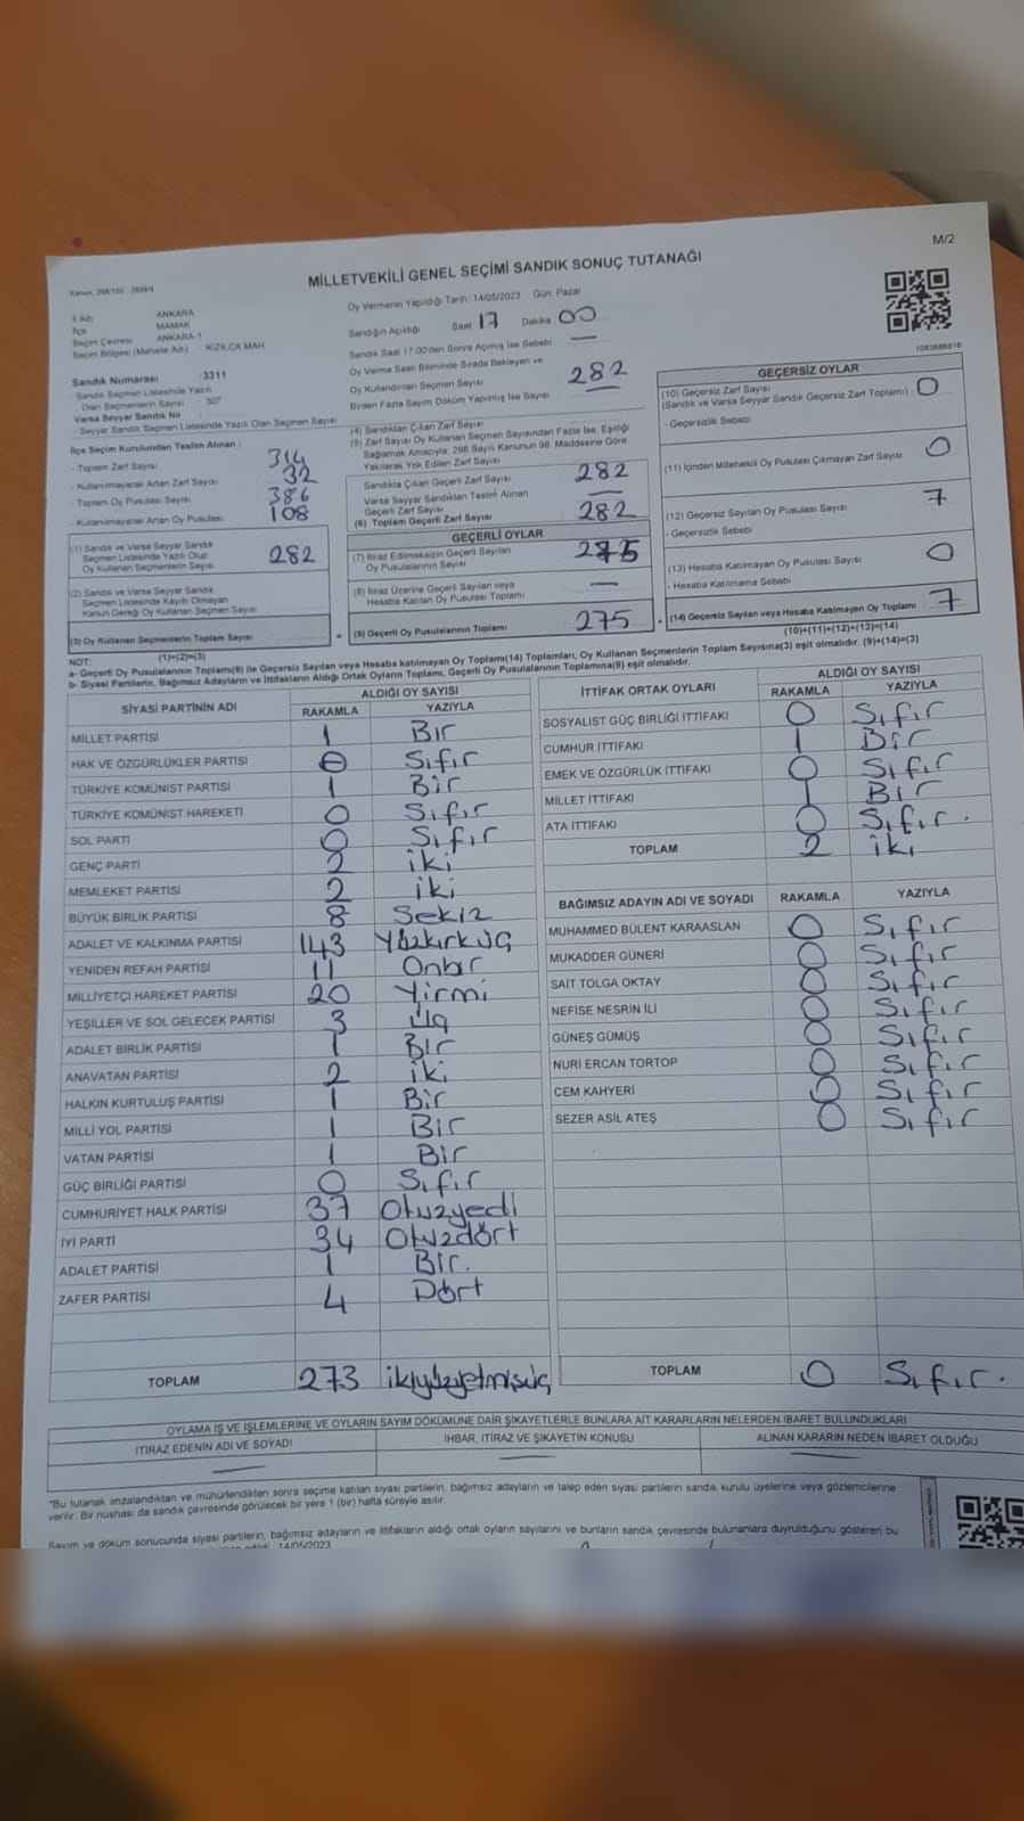 M/2
MİLLETVEKİLİ GENEL SEÇİMİ SANDIK SONUÇ TUTANAĞI
Oy Vermenin Yapıldığı Tarih: 14/05/2023 Gün: Pazar
İlçe
ANKARA
MAMAK
ANKARA-1
KIZILCA MAH
Sandığın Açıldığı Saat 17 Dakika 00
Sandık Saat 17:00'den Sonra Açılmış İse Sebebi: —
Oy Verme Saati Bitiminde Sırada Bekleyen ve
Oy Kullandırılan Seçmen Sayısı 282
Birden Fazla Sayım Döküm Yapılmış İse Sayısı —
Sandık Numarası : 3311
Sandık Seçmen Listesinde Yazılı
Olan Seçmenlerin Sayısı : 307
Varsa Seyyar Sandık No
- Seyyar Sandık Seçmen Listesinde Yazılı Olan Seçmen Sayısı
İlçe Seçim Kurulundan Teslim Alınan :
- Toplam Zarf Sayısı 314
- Kullanılmayarak Artan Zarf Sayısı 32
- Toplam Oy Pusulası Sayısı 386
- Kullanılmayarak Artan Oy Pusulası 108
(1) Sandık ve Varsa Seyyar Sandık
Seçmen Listesinde Yazılı Olup
Oy Kullanan Seçmenlerin Sayısı 282
(2) Sandık ve Varsa Seyyar Sandık
Seçmen Listesinde Kayıtlı Olmayan
Kanun Gereği Oy Kullanan Seçmen Sayısı
(3) Oy Kullanan Seçmenlerin Toplam Sayısı
(1)+(2)=(3)
(4) Sandıktan Çıkan Zarf Sayısı
(5) Zarf Sayısı Oy Kullanan Seçmen Sayısından Fazla İse, Eşitliği
Sağlamak Amacıyla; 298 Sayılı Kanunun 98. Maddesine Göre
Yakılarak Yok Edilen Zarf Sayısı
Sandıkta Çıkan Geçerli Zarf Sayısı 282
Varsa Seyyar Sandıktan Teslim Alınan
Geçerli Zarf Sayısı —
(6) Toplam Geçerli Zarf Sayısı 282
GEÇERLİ OYLAR
(7) İtiraz Edilmeksizin Geçerli Sayılan
Oy Pusulasının Sayısı 275
(8) İtiraz Üzerine Geçerli Sayılan veya
Hesaba Katılan Oy Pusulası Toplamı —
(9) Geçerli Oy Pusulalarının Toplamı 275
GEÇERSİZ OYLAR
(10) Geçersiz Zarf Sayısı
(Sandık ve Varsa Seyyar Sandık Geçersiz Zarf Toplamı) 0
- Geçersizlik Sebebi
(11) İçinden Milletvekili Oy Pusulası Çıkmayan Zarf Sayısı 0
(12) Geçersiz Sayılan Oy Pusulası Sayısı 7
- Geçersizlik Sebebi
(13) Hesaba Katılmayan Oy Pusulası Sayısı 0
- Hesaba Katılmama Sebebi
(14) Geçersiz Sayılan veya Hesaba Katılmayan Oy Toplamı 7
(10)+(11)+(12)+(13)=(14)
NOT:
a- Geçerli Oy Pusulalarının Toplamı(9) ile Geçersiz Sayılan veya Hesaba katılmayan Oy Toplamı(14) Toplamları, Oy Kullanan Seçmenlerin Toplam Sayısına(3) eşit olmalıdır. (9)+(14)=(3)
b- Siyasi Partilerin, Bağımsız Adayların ve İttifakların Aldığı Ortak Oyların Toplamı, Geçerli Oy Pusulalarının Toplamına(9) eşit olmalıdır.
SİYASİ PARTİNİN ADI
ALDIĞI OY SAYISI
RAKAMLA YAZIYLA
MİLLET PARTİSİ 1 Bir
HAK VE ÖZGÜRLÜKLER PARTİSİ 0 Sıfır
TÜRKİYE KOMÜNİST PARTİSİ 1 Bir
TÜRKİYE KOMÜNİST HAREKETİ 0 Sıfır
SOL PARTİ 0 Sıfır
GENÇ PARTİ 2 iki
MEMLEKET PARTİSİ 2 iki
BÜYÜK BİRLİK PARTİSİ 8 Sekiz
ADALET VE KALKINMA PARTİSİ 143 Yüzkırküç
YENİDEN REFAH PARTİSİ 11 Onbir
MİLLİYETÇİ HAREKET PARTİSİ 20 Yirmi
YEŞİLLER VE SOL GELECEK PARTİSİ 3 Üç
ADALET BİRLİK PARTİSİ 1 Bir
ANAVATAN PARTİSİ 2 iki
HALKIN KURTULUŞ PARTİSİ 1 Bir
MİLLİ YOL PARTİSİ 1 Bir
VATAN PARTİSİ 1 Bir
GÜÇ BİRLİĞİ PARTİSİ 0 Sıfır
CUMHURİYET HALK PARTİSİ 37 Otuzyedi
İYİ PARTİ 34 Otuzdört
ADALET PARTİSİ 1 Bir.
ZAFER PARTİSİ 4 Dört
TOPLAM 273 ikiyüzyetmişüç
İTTİFAK ORTAK OYLARI
ALDIĞI OY SAYISI
RAKAMLA YAZIYLA
SOSYALİST GÜÇ BİRLİĞİ İTTİFAKI 0 Sıfır
CUMHUR İTTİFAKI 1 Bir
EMEK VE ÖZGÜRLÜK İTTİFAKI 0 Sıfır
MİLLET İTTİFAKI 1 Bir
ATA İTTİFAKI 0 Sıfır.
TOPLAM 2 iki
BAĞIMSIZ ADAYIN ADI VE SOYADI RAKAMLA YAZIYLA
MUHAMMED BÜLENT KARAASLAN 0 Sıfır
MUKADDER GÜNERİ 0 Sıfır
SAİT TOLGA OKTAY 0 Sıfır
NEFİSE NESRİN İLİ 0 Sıfır
GÜNEŞ GÜMÜŞ 0 Sıfır
NURİ ERCAN TORTOP 0 Sıfır
CEM KAHYERİ 0 Sıfır
SEZER ASİL ATEŞ 0 Sıfır
TOPLAM 0 Sıfır.
OYLAMA İŞ VE İŞLEMLERİNE VE OYLARIN SAYIM DÖKÜMÜNE DAİR ŞİKAYETLERLE BUNLARA AİT KARARLARIN NELERDEN İBARET BULUNDUKLARI
İTİRAZ EDENİN ADI VE SOYADI İHBAR, İTİRAZ VE ŞİKAYETİN KONUSU ALINAN KARARIN NEDEN İBARET OLDUĞU
— — —
"Bu tutanak imzalandıktan ve mühürlendikten sonra seçime katılan siyasi partilerin, bağımsız adayların ve talep eden siyasi partilerin sandık kurulu üyelerine veya gözlemcilerine
verilir. Bir nüshası da sandık çevresinde görülecek bir yere 1 (bir) hafta süreyle asılır.
Sayım ve döküm sonucunda siyasi partilerin, bağımsız adayların ve ittifakların aldığı ortak oyların sayılarını ve bunların sandık çevresinde bulunanlara duyrulduğunu gösteren bu
14/05/2023